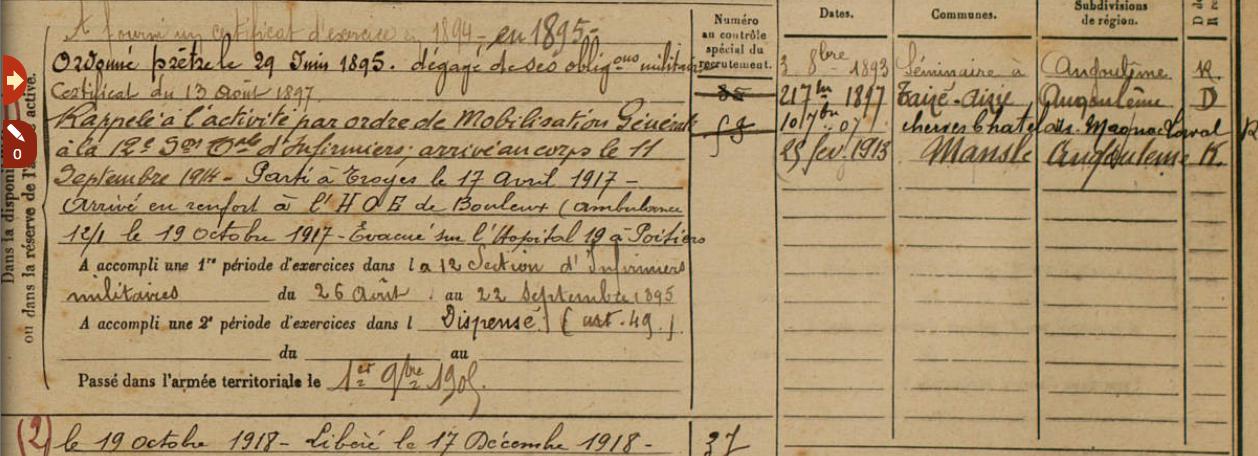 A fourni un certificat d'exercice en 1894 - en 1895 -
Ordonné prêtre le 29 Juin 1895. dégagé de ses oblig.ons militaires
Certificat du 13 Août 1897.
Rappelé à l'activité par ordre de Mobilisation Générale
à la 12e Son d'Infirmiers; arrivé au corps le 11
Septembre 1914 - Parti à Troyes le 17 Avril 1917 -
Arrivé en renfort à l'H O E de Bouleux (ambulance
12/1 le 19 octobre 1917 - Évacué sur l'Hôpital 19 à Poitiers
A accompli une 1re période d'exercices dans la 12 Section d'Infirmiers
militaires du 26 Août au 22 Septembre 1895
A accompli une 2e période d'exercices dans l Dispensé (art. 49.)
du au
Passé dans l'armée territoriale le 1er 9bre 1905.
(2) le 19 octobre 1918 - Libéré le 17 Décembre 1918 -
Dans la disponi
ou dans la réserve de l'a active.
0
Numéro
au contrôle
spécial du
recrutement.
37
Dates. Communes. Subdivisions
de région.
D d
R r
3 8bre 1893 Séminaire à Angoulême R.
217bre 1897 Taizé-Aizie Angoulême D
107bre 07 cherves Chatelars. Magnac Laval R
25 fev. 1913 Mansle Angoulême R.